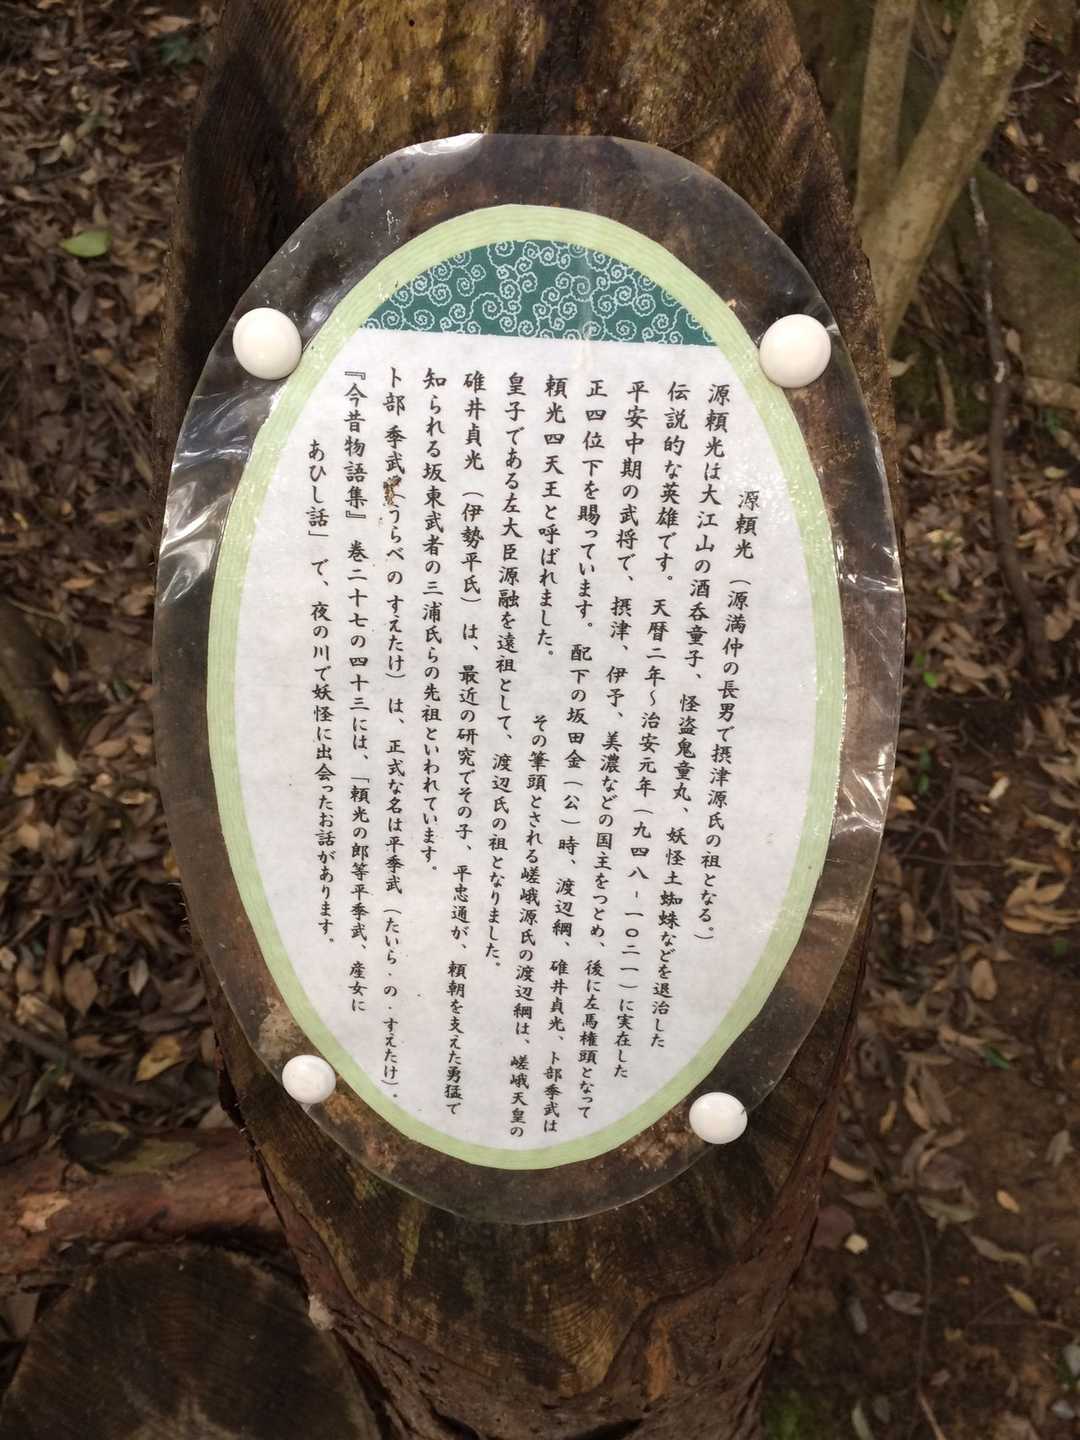 源頼光（源満仲の長男で摂津源氏の祖となる。）
源頼光は大江山の酒呑童子、怪盗鬼童丸、妖怪土蜘蛛などを退治した
伝説的な英雄です。天暦二年～治安元年（九四八-一〇二一）に実在した
平安中期の武将で、摂津、伊予、美濃などの国主をつとめ、後に左馬権頭となって
正四位下を賜っています。配下の坂田金（公）時、渡辺綱、碓井貞光、卜部季武は
頼光四天王と呼ばれました。その筆頭とされる嵯峨源氏の渡辺綱は、嵯峨天皇の
皇子である左大臣源融を遠祖として、渡辺氏の祖となりました。
碓井貞光（伊勢平氏）は、最近の研究でその子、平忠通が、頼朝を支えた勇猛で
知られる坂東武者の三浦氏らの先祖といわれています。
卜部季武（うらべのすえたけ）は、正式な名は平季武（たいら・の・すえたけ）。
『今昔物語集』巻二十七の四十三には、「頼光の郎等平季武、産女に
あひし話」で、夜の川で妖怪に出会ったお話があります。